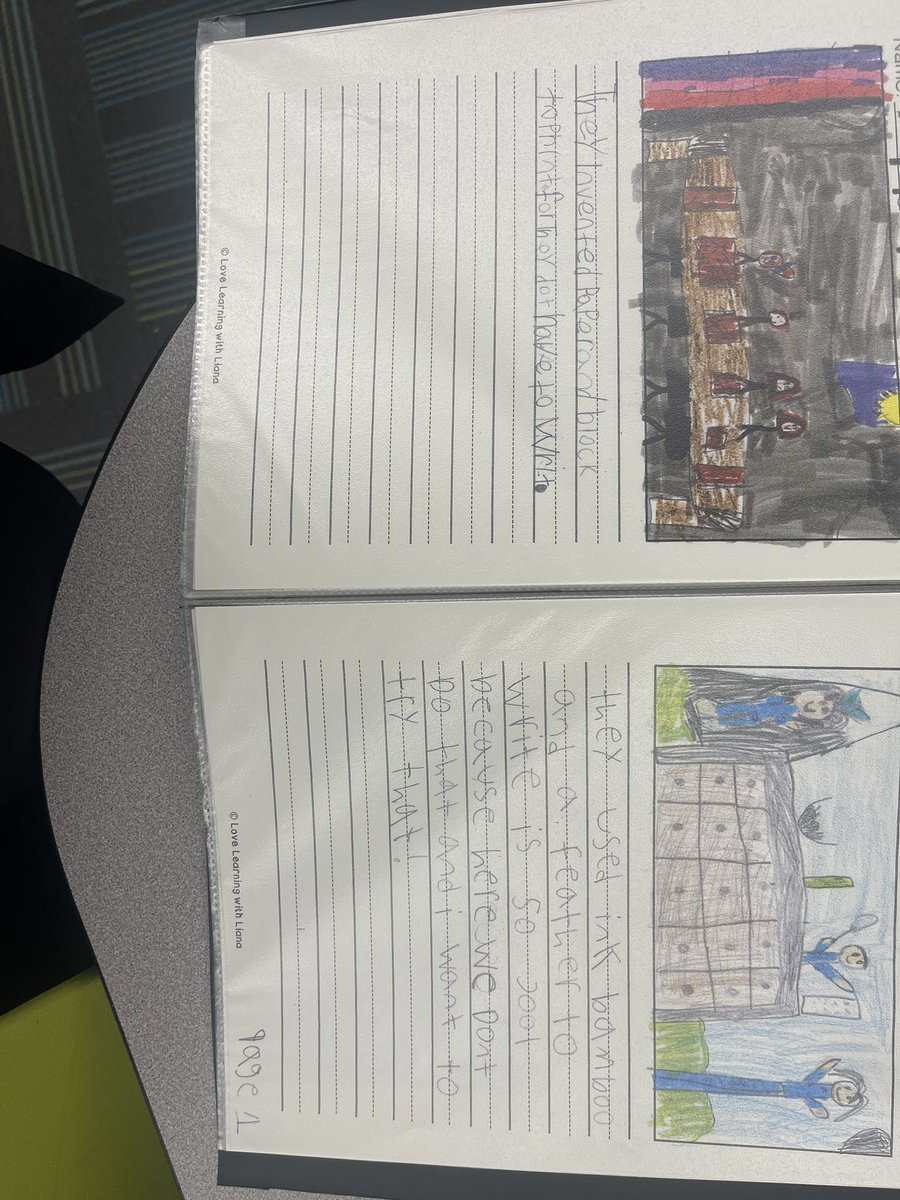 Name:
They invented Paper and block
to Print for they dot have to Writ.
© Love Learning with Liana
they used ink bamboo
and a feather to
write is so cool
because here we Dont
Do that and i want to
try that!
© Love Learning with Liana
Page 1